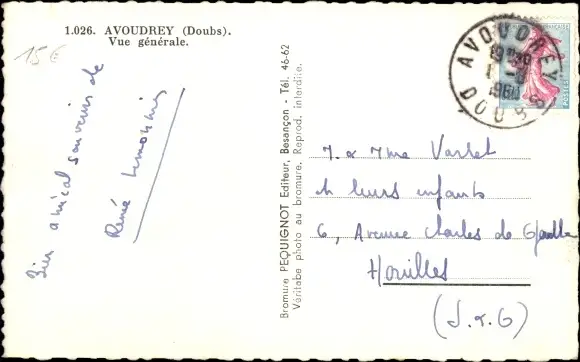 1.026. AVOUDREY (Doubs).
Vue générale.
15 €
Bien amical souvenir de
Renée
Bromure PEQUIGNOT Editeur, Besançon - Tél. 46-62
Véritabe photo au bromure. Reprod. interdite.
AVOUDREY
19 30
1960
DOUBS
POSTES
M. & Mme Varlet
& leurs enfants
6, Avenue Charles de Gaulle
Houilles
(S. & O)